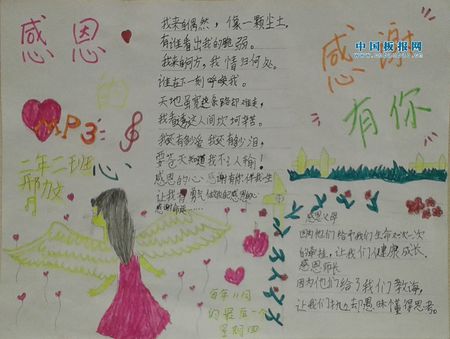 感恩
的
心
MP3
二年二班
我来自偶然，像一颗尘土，
有谁看出我的脆弱。
我来自何方，我情归何处，
谁在下一刻呼唤我。
天地虽宽这条路却难走，
我看遍这人间坎坷辛苦。
我还有多少爱我还有多少泪，
要苍天知道我不认输！
感恩的心 感谢有你伴我一生
让我有勇气
感谢
有你
中国板报网
感恩父母
因为他们给予我们生命
让我们健康成长。
感恩师长
因为他们给了我们教诲，
让我们抛却愚昧懂得思考。
每年11月
的最后一个
星期四